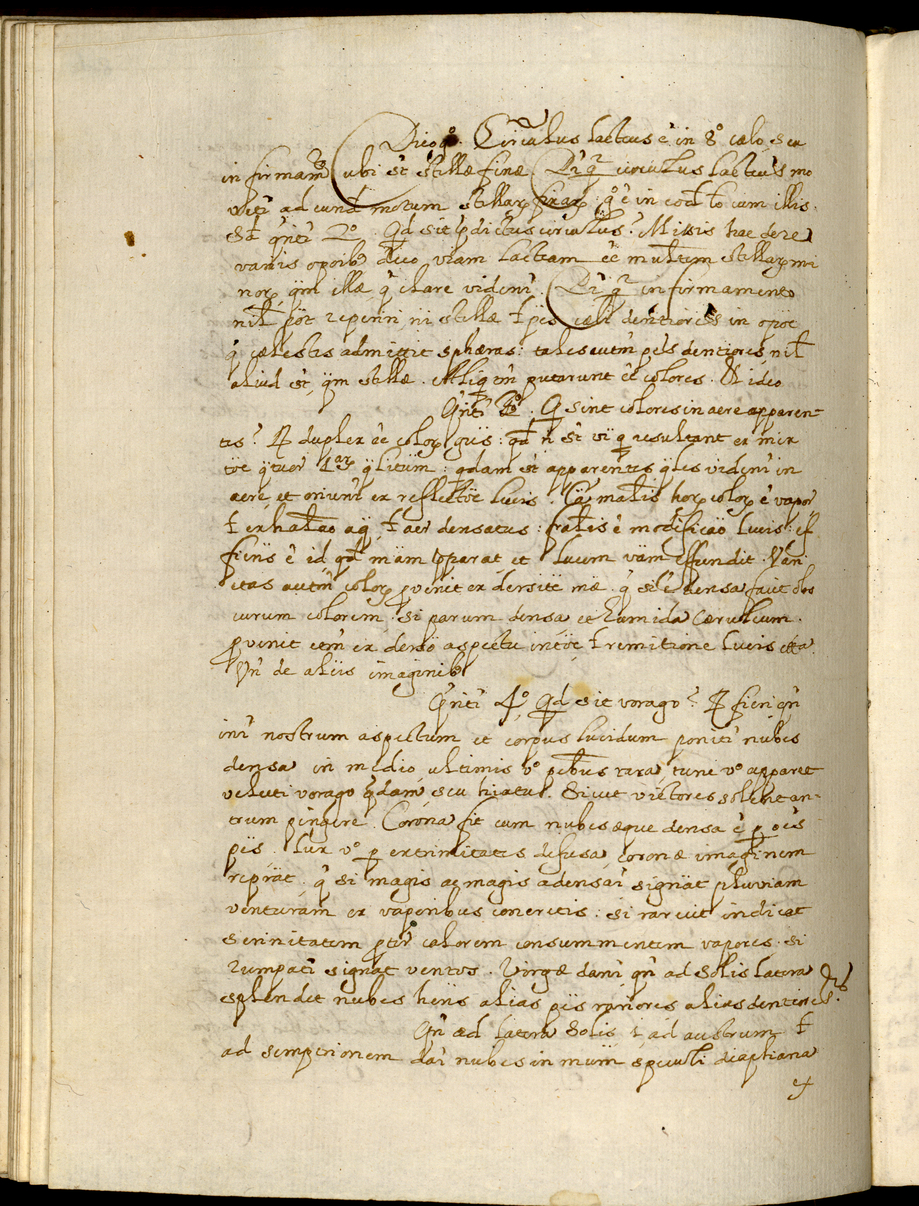 Dico 1º. Circulus lacteus ē in 8º cælo, seu
in firmamᵗº ubi sūt stellæ fixæ. Pr̄ q̄ circulus lacteus mo
vetr̄ ad eund̄ motum stellarꝝ fixarꝝ: g̊ ē in eod̄ lo cum illis.
Sed q̄ritr̄ 2º. Qd sit p̄dictus circulus? Missis hac de re
variis opōibꝰ dico, viam lacteam ēē multm̄ stellarꝝ mi
norꝝ, q̄m illæ q̄ clare videntr̄. Pr̄ q̄ in firmamento
nil̄ pōt reperiri, ni stellæ ł p̄es cæli dentiores in opōe
q̄ cælestis admittit sphæras: tales autm̄ p̄es dentiores nil̄
aliud sūt, q̄m stellæ. Aliq tn̄ putarunt ēē colores. Et ideo
Q̄ritr̄ 3º. Q sint colores in aere apparen-
tes? R duplex ēē colorꝝ gn̄s: qd̄ n̄ sūt vī q resultant ex mix
tōe q̄tuor 1arꝝ q̄litūm: qdam sūt apparentes q̄les videntr̄ in
aere, et oriuntr̄ ex reflectōe lucis. Cā matl̄is horꝝ colorꝝ ē vapor
ł exhalāo aq̄, ł aer densatus: fr̄alis ē modificāo lucis: ef
ficiēs ē id qd̄ mām p̄parat et lucem vām effundit. Vari
etas autm̄ colorꝝ pvenit ex densitē mæ. q̄ si ē densa facit obs
curum colorem, si parum densa et humida cæruleum.
pvenit etm̄ ex derso aspectu intōe ł remitione lucis etta.
Vn̄ de aliis imaginibꝰ
Q̄ritr̄ 4º. Qd sit vorago? R fieri qn̄
intr̄ nostrum aspectum et corpus lucidum ponitr̄ nubes
densa in medio, ultimis vº ptibus rara, tunc vº apparet
veluti vorago q̄dam, seu hiatus. Sicut pictores solent an-
trum pingere. Corona fit cum nubes æque densa ē p oēs
p̄es. Lux vº p extrimitates defusa, coronæ imaginem
repr̄at, q̄ si magis ac magis adensatr̄ signāt pluviam
venturam ex vaporibus concretis: si rarescit indicat
serinitatem ptr̄ calorem consummentem vapores. si
rumpatr̄ signat ventos. Virgæ dantr̄ qn̄ ad Solis latera
splendet nubes hēns alias p̄es rariores alias dentiores.
Qn̄ ad latera Solis ł ad austrum ł
ad semptrionem datr̄ nubes in mūm speculi diaphana